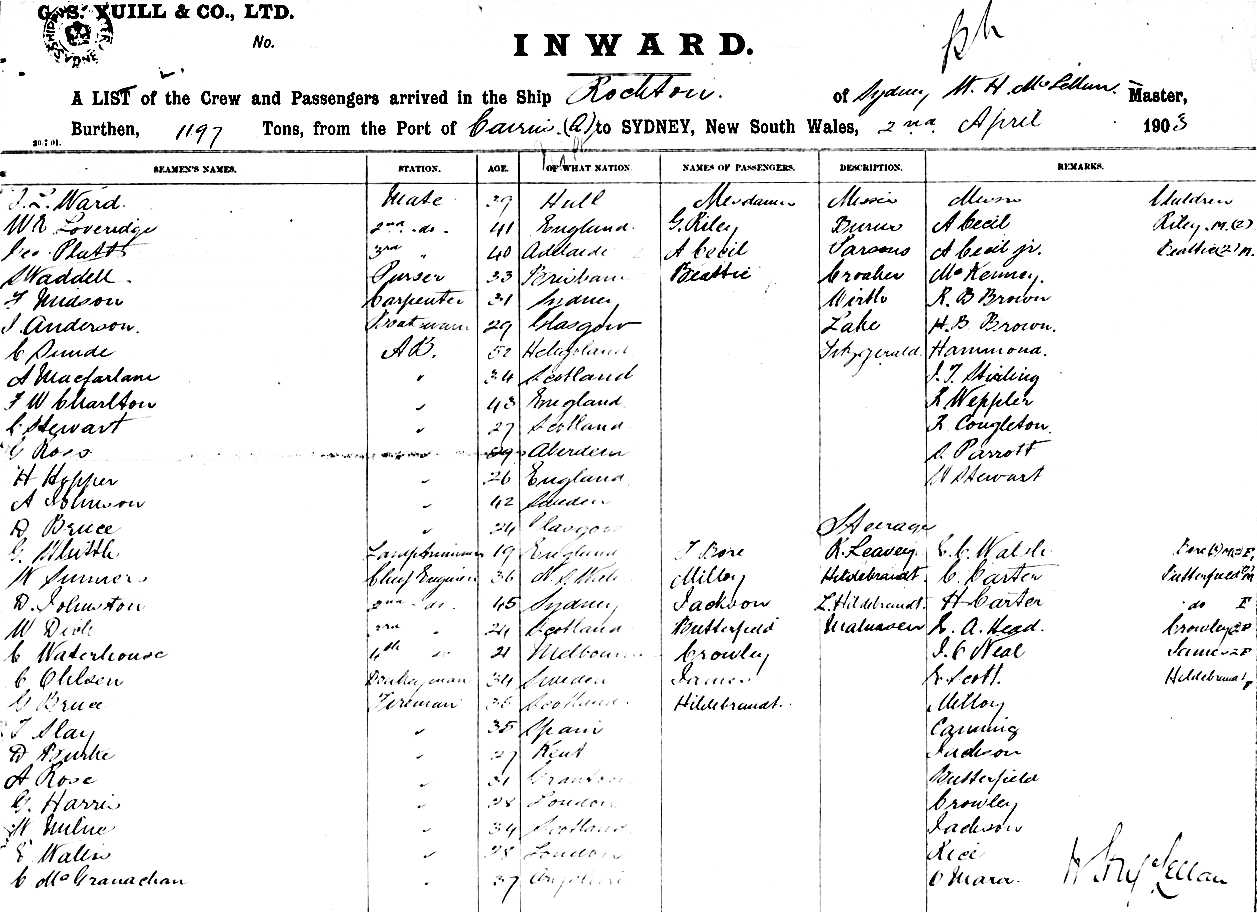 G. S. YUILL & CO., LTD.
No.
INWARD.
A LIST of the Crew and Passengers arrived in the Ship Rockton. of Sydney W. H. McLellan. Master,
Burthen, 1197 Tons, from the Port of Cairns (Q) to SYDNEY, New South Wales, 2nd April 1903
SEAMEN'S NAMES. STATION. AGE. OF WHAT NATION. NAMES OF PASSENGERS. DESCRIPTION. REMARKS.
Ward. Mate 39 Hull Mesdames Messrs Messrs Children
Loveridge 2nd do. 41 England G. Riley Burns A Cecil Riley M.
Geo Platt 3rd " 40 Adelaide A Cecil Parsons A Cecil jr. Beattie (2) M.
Waddell. Purser 33 Brisbane Beattie Croaker McKenney.
F Hudson Carpenter 31 Sydney Wirth R. B Brown
J. Anderson. Boatswain 29 Glasgow Lake H. B Brown.
C AB. 52 Heligoland Fitzgerald. Hammond.
A Macfarlane " 34 Scotland J. T. Stirling
F W Charlton " 43 England Weppler
C Stewart " 27 Scotland Congleton.
Ross " 29 Aberdeen Parrott
H Hopper " 26 England W Stewart
A Johnson " 42 Sweden
D Bruce " 24 Glasgow Steerage
G. Lamptrimmer 19 England Bore R. Leavey. Walsh
W Sumers Chief Engineer 36 Milloy Hildebrandt. C. Carter Butterfield
D. Johnston 2nd do. 45 Sydney Jackson L. Hildebrandt. H Carter do F
W Dick 3rd " 24 Scotland Butterfield A. Head. Crowley
C Waterhouse 4th " 21 Melbourne Crowley Neal James
C Ohlsen Donkeyman 34 Sweden James Scott. Hildebrandt
G Bruce Fireman Scotland Hildebrandt. Milloy
T Slay " 35 Spain Canning
D Burke " 27 Kent Jackson
A Rose " 31 Grantown Butterfield
G. Harris " 28 London Crowley
W Milne " 34 Scotland Jackson
E Walin " 28 London Rice
C McGranachan " 37 O'Mara. W. H. McLellan